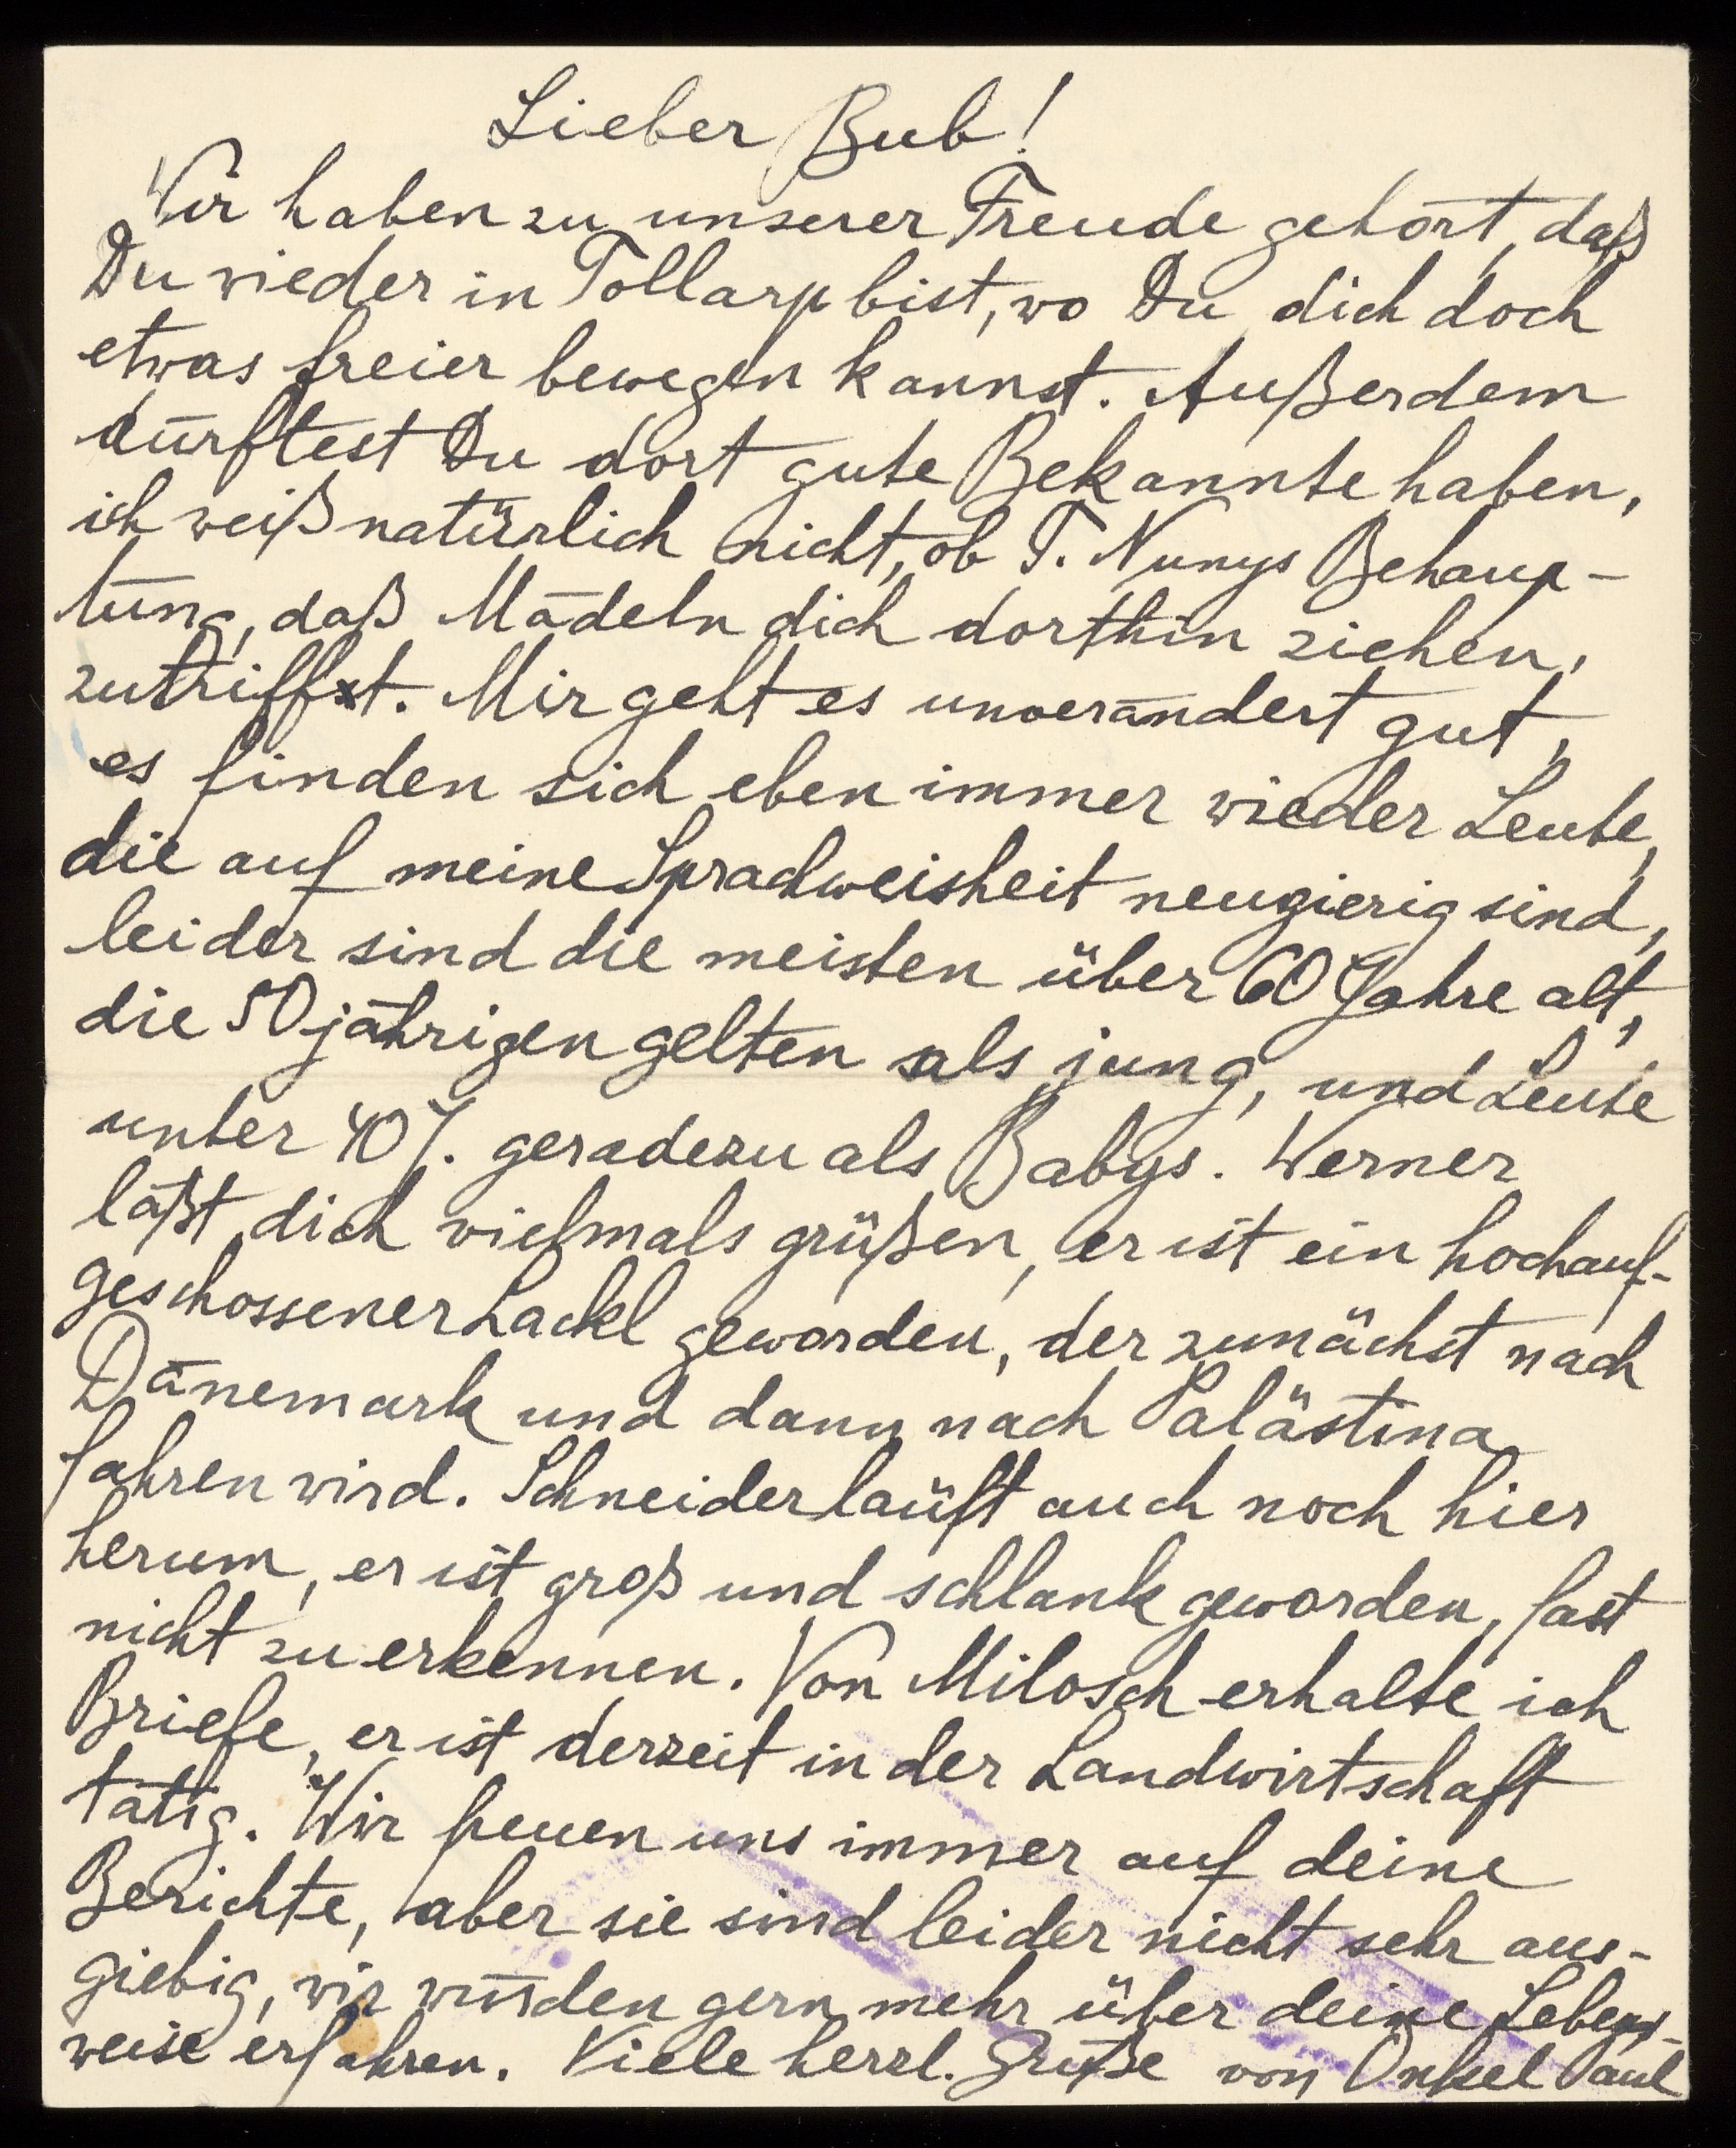 Lieber Bub!
Wir haben zu unserer Freude gehört, daß
Du wieder in Tollarp bist, wo Du dich doch
etwas freier bewegen kannst. Außerdem
dürftest Du dort gute Bekannte haben,
ich weiß natürlich nicht, ob T. Nunys Behaup-
tung, daß Mädeln dich dorthin ziehen,
zutrifft. Mir geht es unverändert gut,
es finden sich eben immer wieder Leute,
die auf meine Sprachweisheit neugierig sind,
leider sind die meisten über 60 Jahre alt,
die 50jährigen gelten als jung, und Leute
unter 40 J. geradezu als Babys. Werner
läßt dich vielmals grüßen, er ist ein hochauf-
geschossener Lackl geworden, der zunächst nach
Dänemark und dann nach Palästina
fahren wird. Schneider läuft auch noch hier
herum, er ist groß und schlank geworden, fast
nicht zu erkennen. Von Milosch erhalte ich
Briefe, er ist derzeit in der Landwirtschaft
tätig. Wir freuen uns immer auf deine
Berichte, aber sie sind leider nicht sehr aus-
giebig, wir würden gern mehr über deine Lebens-
weise erfahren. Viele herzl. Grüße von Onkel Paul